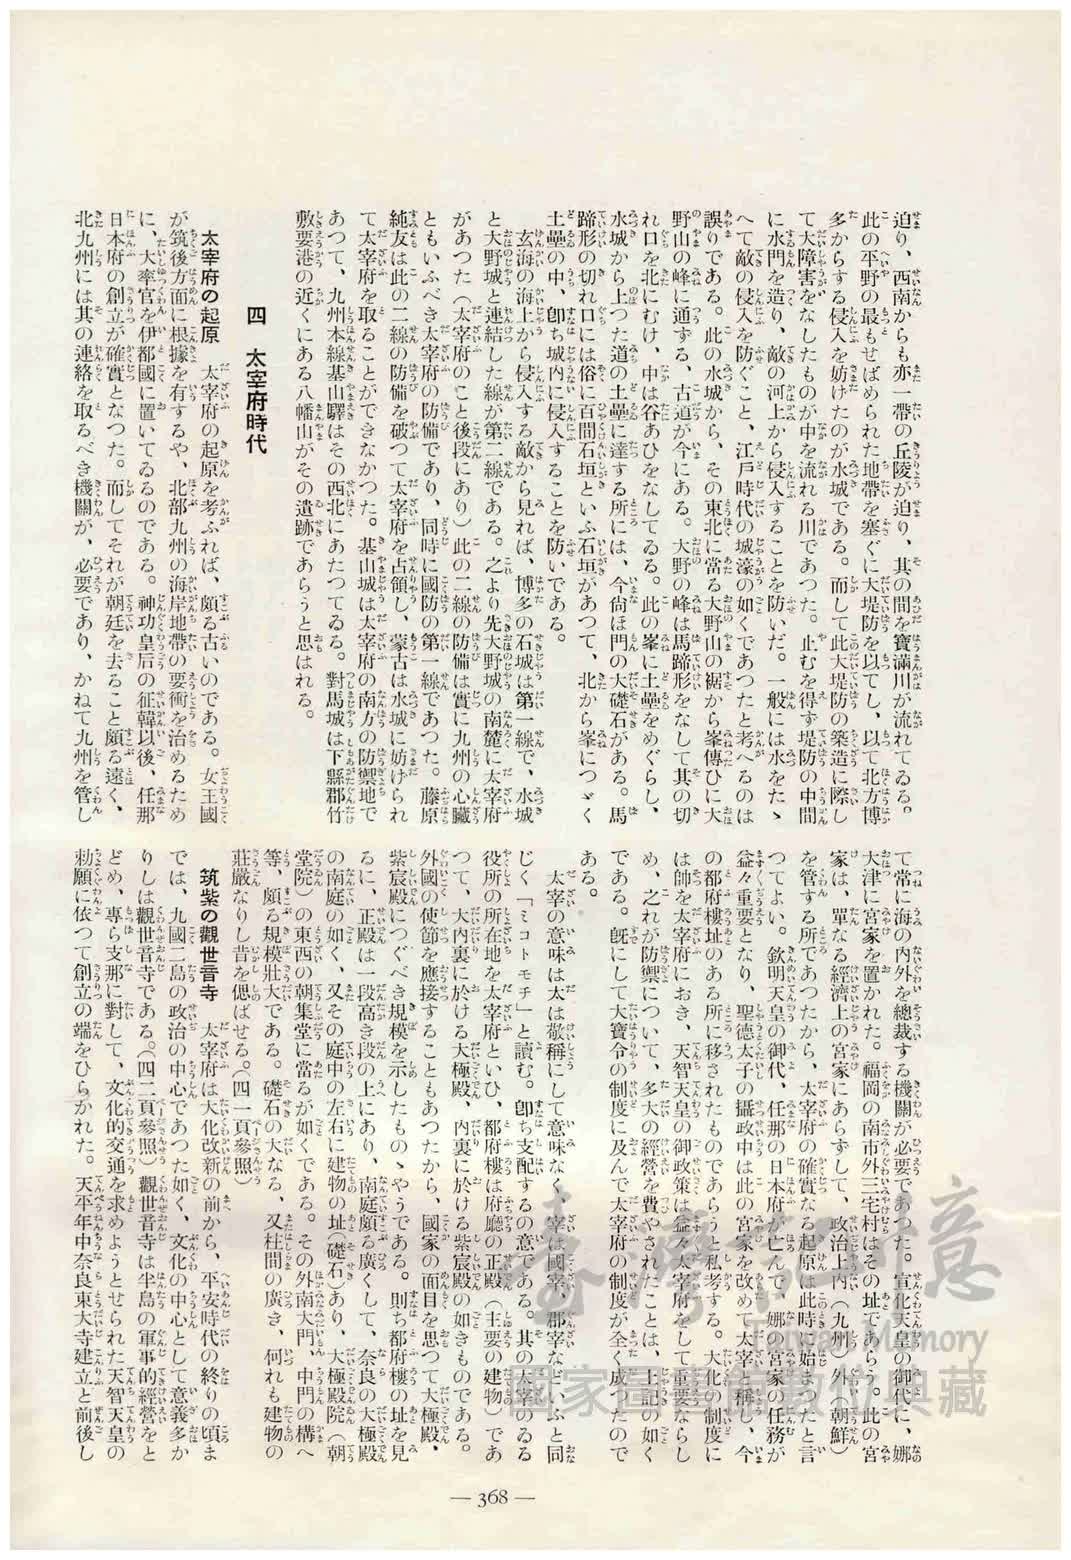 迫り、西南からも亦一帶の丘陵が迫り、其の間を寶滿川が流れてゐる。
此の平野の最もせばめられた地帶を塞ぐに大堤防を以てし、以て北方博
多からする侵入を妨けたのが水城である。而して此大堤防の築造に際し
て大障害をなしたものが中を流れる川であつた。止むを得ず堤防の中間
に水門を造り、敵の河上から侵入することを防いだ。一般には水をたゝ
へて敵の侵入を防ぐこと、江戶時代の城濠の如くであつたと考へるのは
誤りである。此の水城から、その東北に當る大野山の裾から峯傳ひに大
野山の峰に通する、古道が今にある。大野の峰は馬蹄形をなして其の切
れ口を北にむけ、中は谷あひをなしてゐる。此の峯に土壘をめぐらし、
水城から上つた道の土壘に達する所には、今尙ほ門の大礎石がある。馬
蹄形の切れ口には俗に百間石垣といふ石垣があつて、北から峯につゞく
土壘の中、卽ち城內に侵入することを防いである。
玄海の海上から侵入する敵から見れば、博多の石城は第一線で、水城
と大野城と連結した線が第二線である。之より先大野城の南麓に太宰府
があつた（太宰府のこと後段にあり）此の二線の防備は實に九州の心臟
ともいふべき太宰府の防備であり、同時に國防の第一線であつた。藤原
純友は此の二線の防備を破つて太宰府を占領し、蒙古は水城に妨げられ
て太宰府を取ることができなかつた。基山城は太宰府の南方の防禦地で
あつて、九州本線基山驛はその西北にあたつてゐる。對馬城は下縣郡竹
敷要港の近くにある八幡山がその遺跡であらうと思はれる。
四　太宰府時代
太宰府の起原　太宰府の起原を考ふれば、頗る古いのである。女王國
が筑後方面に根據を有するや、北部九州の海岸地帶の要衝を治めるため
に、大率官を伊都國に置いてゐるのである。神功皇后の征韓以後、任那
日本府の創立が確實となつた。而してそれが朝廷を去ること頗る遠く、
北九州には其の連絡を取るべき機關が、必要であり、かねて九州を管し
て常に海の內外を總裁する機關が必要であつた。宣化天皇の御代に、娜
大津に宮家を置かれた。福岡の南市外三宅村はその址であらう。此の宮
家は、單なる經濟上の宮家にあらずして、政治上內（九州）外（朝鮮）
を管する所であつたから、太宰府の確實なる起原は此時に始まつたと言
つてよい。欽明天皇の御代、任那の日本府が亡んで、娜の宮家の任務が
益々重要となり、聖德太子の攝政中は此の宮家を改めて太宰と稱し、今
の都府樓址のある所に移されたものであらうと私考する。大化の制度に
は師を太宰府におき、天智天皇の御政策は益々太宰府をして重要ならし
め、之れが防禦について、多大の經營を費やされたことは、上記の如く
である。旣にして大寶令の制度に及んで太宰府の制度が全く成つたので
ある。
太宰の意味は太は敬稱にして意味なく、宰は國宰、郡宰など、いふと同
じく「ミコトモチ」と讀む。卽ち支配するの意である。其の太宰のゐる
役所の所在地を太宰府といひ、都府樓は府廳の正殿（主要の建物）であ
つて、大內裏に於ける大極殿、內裏に於ける紫宸殿の如きものである。
外國の使節を應接することもあつたから、國家の面目を思つて大極殿、
紫宸殿につぐべき規模を示したものゝやうである。則ち都府樓の址を見
るに、正殿は一段高き段の上にあり、南庭頗る廣くして、奈良の大極殿
の南庭の如く、又その庭中の左右に建物の址（礎石）あり、大極殿院（朝
堂院）の東西の朝集堂に當るが如くである。その外南大門、中門の構へ
等、頗る規模壯大である。礎石の大なる、又柱間の廣き、何れも建物の
莊嚴なりし昔を偲ばせる。（四一頁參照）
筑紫の觀世音寺　太宰府は大化改新の前から、平安時代の終りの頃ま
では、九國二島の政治の中心であつた如く、文化の中心として意義多か
りしは觀世音寺である。（四二頁參照）觀世音寺は半島の軍事的經營をと
どめ、專ら支那に對して、文化的交通を求めようとせられた天智天皇の
勅願に依つて創立の端をひらかれた。天平年中奈良東大寺建立と前後し
— 368 —
臺灣記憶
Taiwan Memory
國家圖書館數位典藏